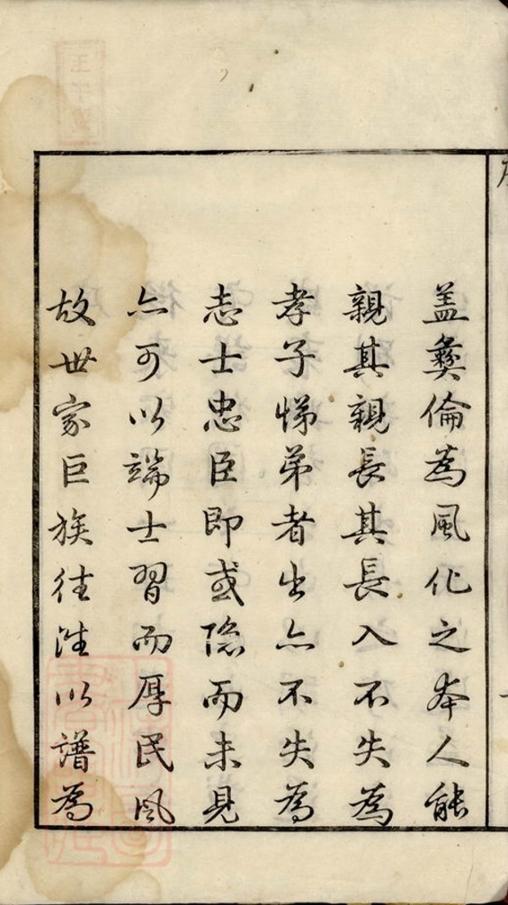 盖彝倫為風化之本人能
親其親長其長入不失為
孝子悌弟者出亦不失為
志士忠臣即或隐而未見
亦可以端士習而厚民風
故世家巨族往往以譜為